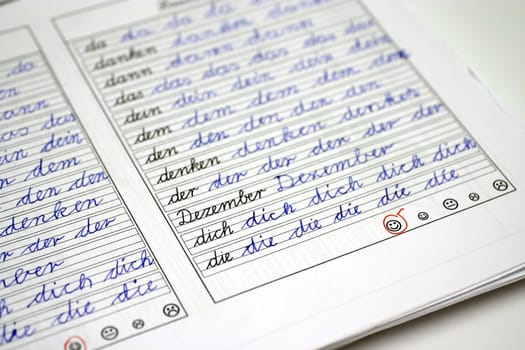 da da da da da
danken danken danken
dann dann dann
das das das das das
dein dein dein dein
dem dem dem dem dem
den den den den den
denken denken denken
der der der der der der
Dezember Dezember
dich dich dich dich dich
die die die die die die
da
ann
das das
n dein
dem
den den
denken
der der
ber
h dich dich
die die